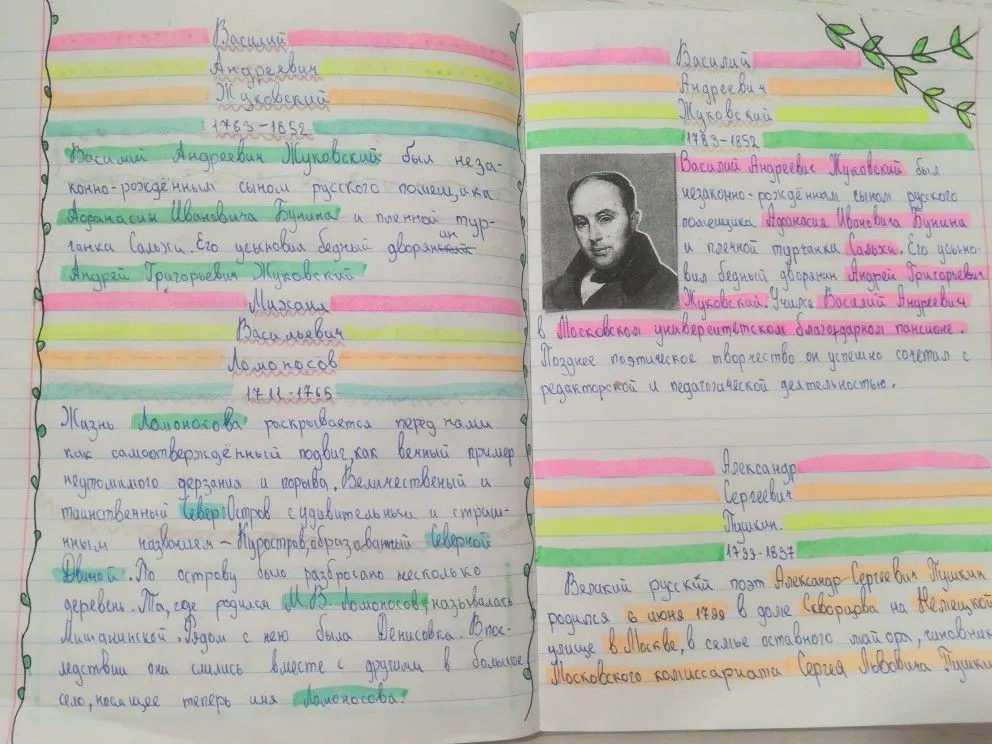 Василий
Андреевич
Жуковский
1783-1852
Василий Андреевич Жуковский был неза-
конно-рождённым сыном русского помещика
Афанасия Ивановича Бунина и пленной тур-
чанки Сальхи. Его усыновил бедный дворянин
Андрей Григорьевич Жуковский
Михаил
Васильевич
Ломоносов
1711-1765
Жизнь Ломоносова раскрывается перед нами
как самоотверждённый подвиг, как венный пример
неутомимого дерзания и порыва. Величественый и
таинственный Север. Остров с удивительным и стран-
нным названием - Куростров, образованный Северной
Двиной. По острову было разбросано несколько
деревень. Та, где родился М.В. Ломоносов, называлась
Мишанинской. Рядом с нею была Денисовка. Впос-
ледствии они слились вместе с другими в большое
село, носящее теперь имя Ломоносова.
Василий
Андреевич
Жуковский
1783-1852
Василий Андреевич Жуковский был
незаконно-рождённым сыном русского
помещика Афанасия Ивановича Бунина
и пленной турчанки Сальхи. Его усыно-
вил бедный дворянин Андрей Григорьевич
Жуковский. Учился Василий Андреевич
в Московском университетском благородном пансионе.
Позднее поэтическое творчество он успешно сочетал с
редакторской и педагогической деятельностью.
Александр
Сергеевич
Пушкин.
1799-1837
Великий русский поэт Александр Сергеевич Пушкин
родился 6 июня 1799 в доме Скворцова на Немецкой
улице в Москве, в семье отставного майора, чиновник
Московского комиссариата Сергея Львовича Пушкин